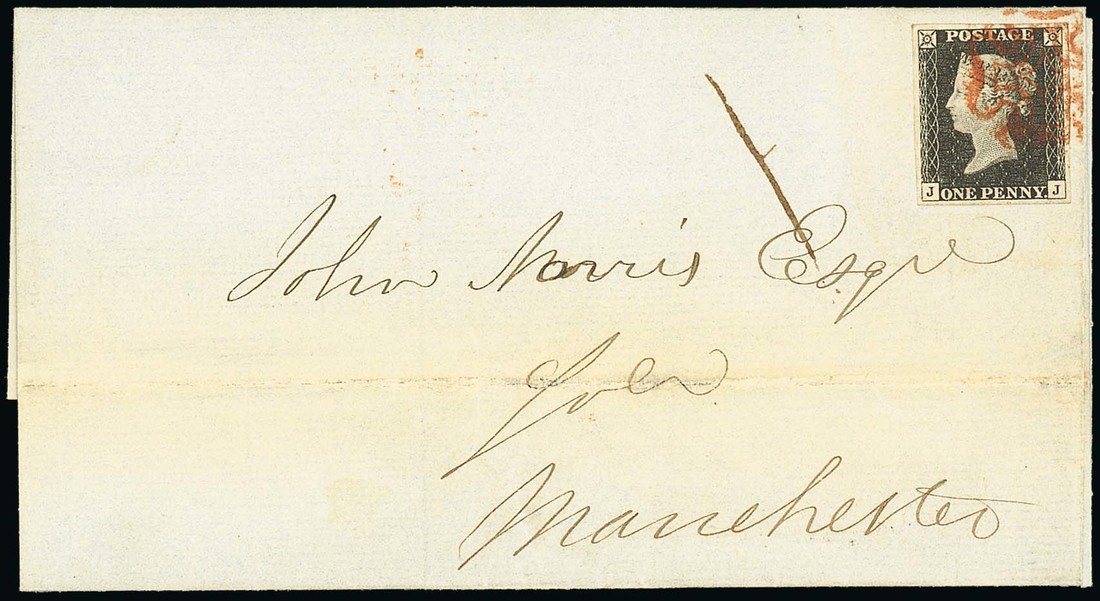 POSTAGE
J ONE PENNY. J
John Norris Esqre
Manchester